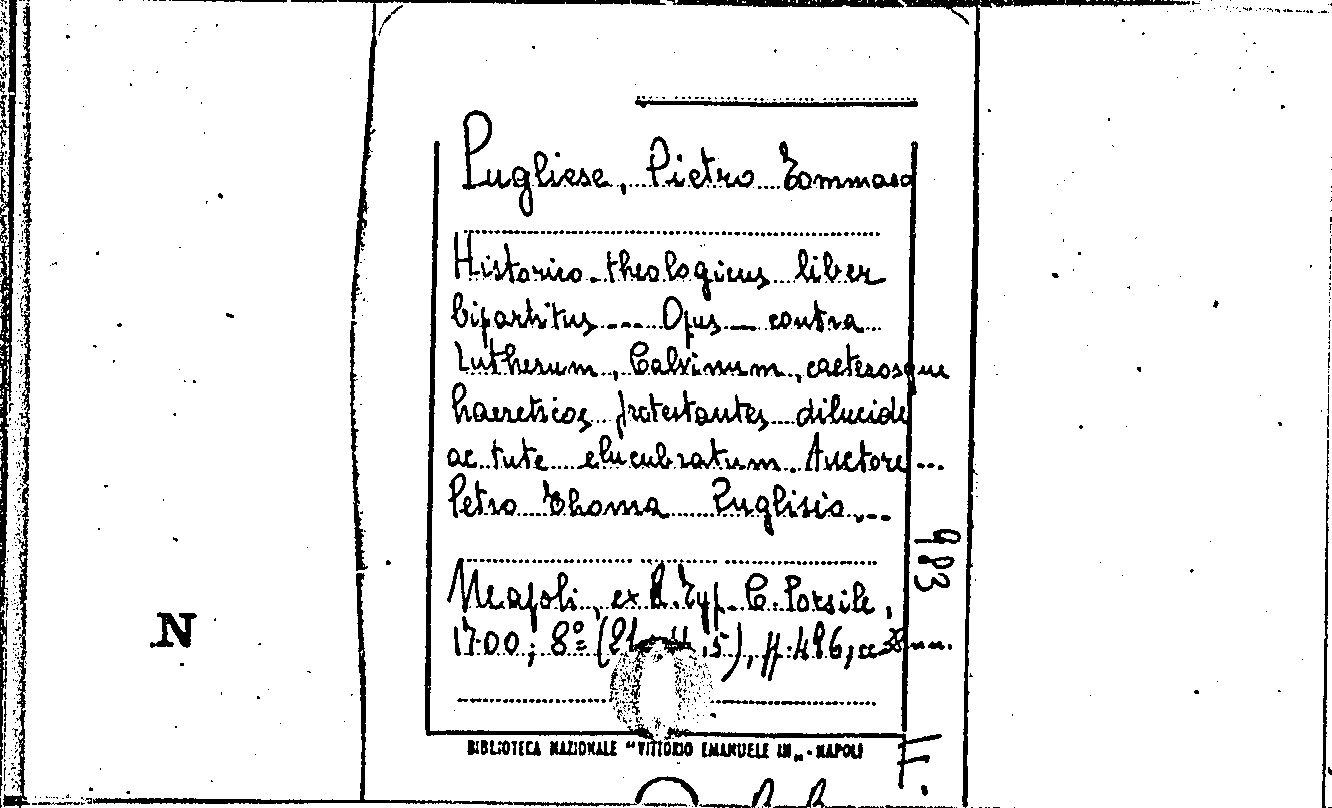 Pugliese, Pietro Tommaso
Historico-theologicus liber
bipartitus --- Opus --- contra
Lutherum, Calvinum, caeterosque
haereticos protestantes dilucide
ac tute elucubratum. Auctore ...
Petro Thoma Puglisio ...
Neapoli, ex R. Typ. C. Porsile,
1700; 8º (21 , 5), pp. 496, cc nn.
983
N
BIBLIOTECA NAZIONALE "VITTORIO EMANUELE III„ - NAPOLI